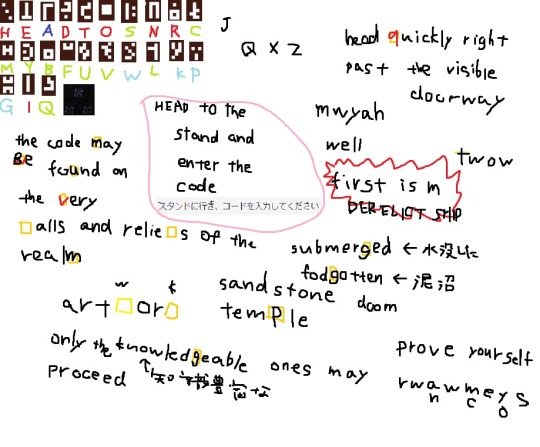 H E A D T O S N R C
M Y B F U V W L K P
G I Q
J
Q X Z
head quickly right
past the visible
doorway
mwyah
well
twow
first is m
DERELICT SHIP
HEAD TO the
stand and
enter the
code
スタンドに行き、コードを入力してください
the code may
Be found on
the very
□alls and relie□s of the
realm
submerged ← 水没した
fodgotten ← 泥沼
doom
sandstone
temple
w k
art□or□
only the knowledgeable ones may
proceed
prove yourself
rwawmeys
n c o